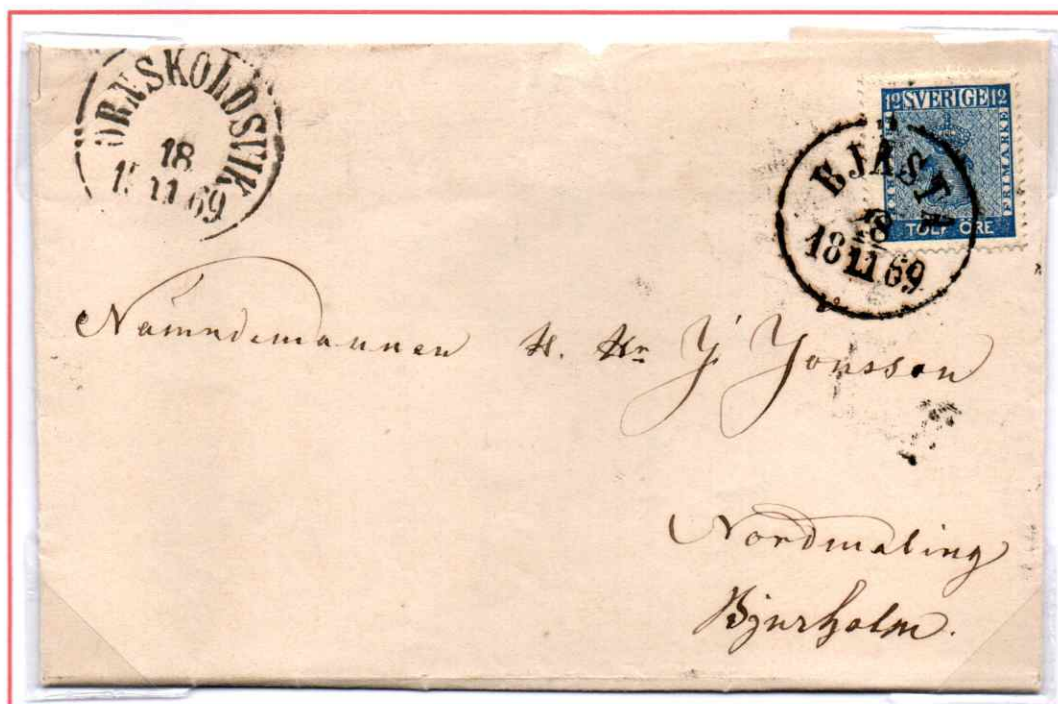 ÖRNSKÖLDSVIK
18
11 69
12 SVERIGE 12
FRIMÄRKE
TOLF ÖRE
BJÄSTA
18
18 11 69
Nämndemannen H. Hr J Jonsson
Nordmaling
Bjurholm.